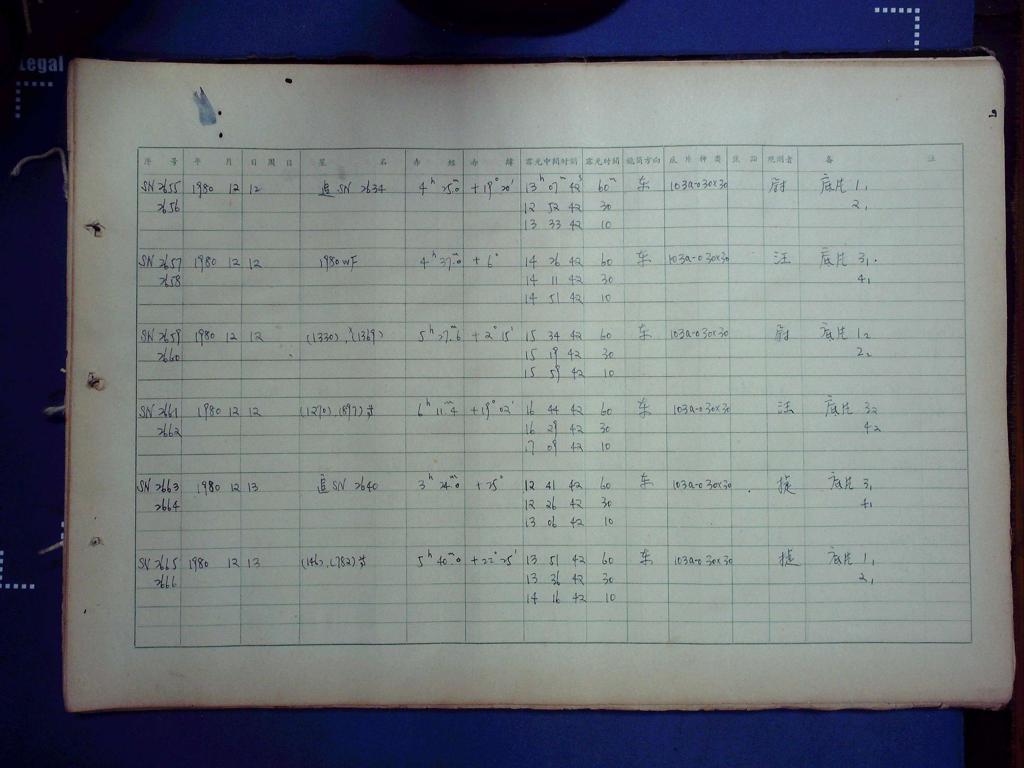 Legal
序 号 年 月 日 周 日 星 名 赤 經 赤 緯 露光中間时刻 露光时间 鏡筒方向 底 片 种 类 观测者 备 注
SN 2655 1980 12 12 追 SN 2634 4ʰ 25.ᵐ0 +19° 20' 13ʰ 07ᵐ 42ˢ 60ᵐ 东 103a-0 30×30 尉 底片 1₁
2656 12 52 42 30 2₁
13 33 42 10
SN 2657 1980 12 12 1980 WF 4ʰ 37.ᵐ0 + 6° 14 26 42 60 东 103a-0 30×30 汪 底片 3₁
2658 14 11 42 30 4₁
14 51 42 10
SN 2659 1980 12 12 (1330), (1369) 5ʰ 27.ᵐ6 + 2° 15' 15 34 42 60 东 103a-0 30×30 尉 底片 1₂
2660 15 19 42 30 2₂
15 59 42 10
SN 2661 1980 12 12 (1270), (897)等 6ʰ 11.ᵐ4 +19° 02' 16 44 42 60 东 103a-0 30×30 汪 底片 3₂
2662 16 29 42 30 4₂
17 09 42 10
SN 2663 1980 12 13 追 SN 2640 3ʰ 24.ᵐ0 + 25° 12 41 42 60 东 103a-0 30×30 捷 底片 3₁
2664 12 26 42 30 4₁
13 06 42 10
SN 2665 1980 12 13 (146), (782)等 5ʰ 40.ᵐ0 +22° 25' 13 51 42 60 东 103a-0 30×30 捷 底片 1₁
2666 13 36 42 30 2₁
14 16 42 10